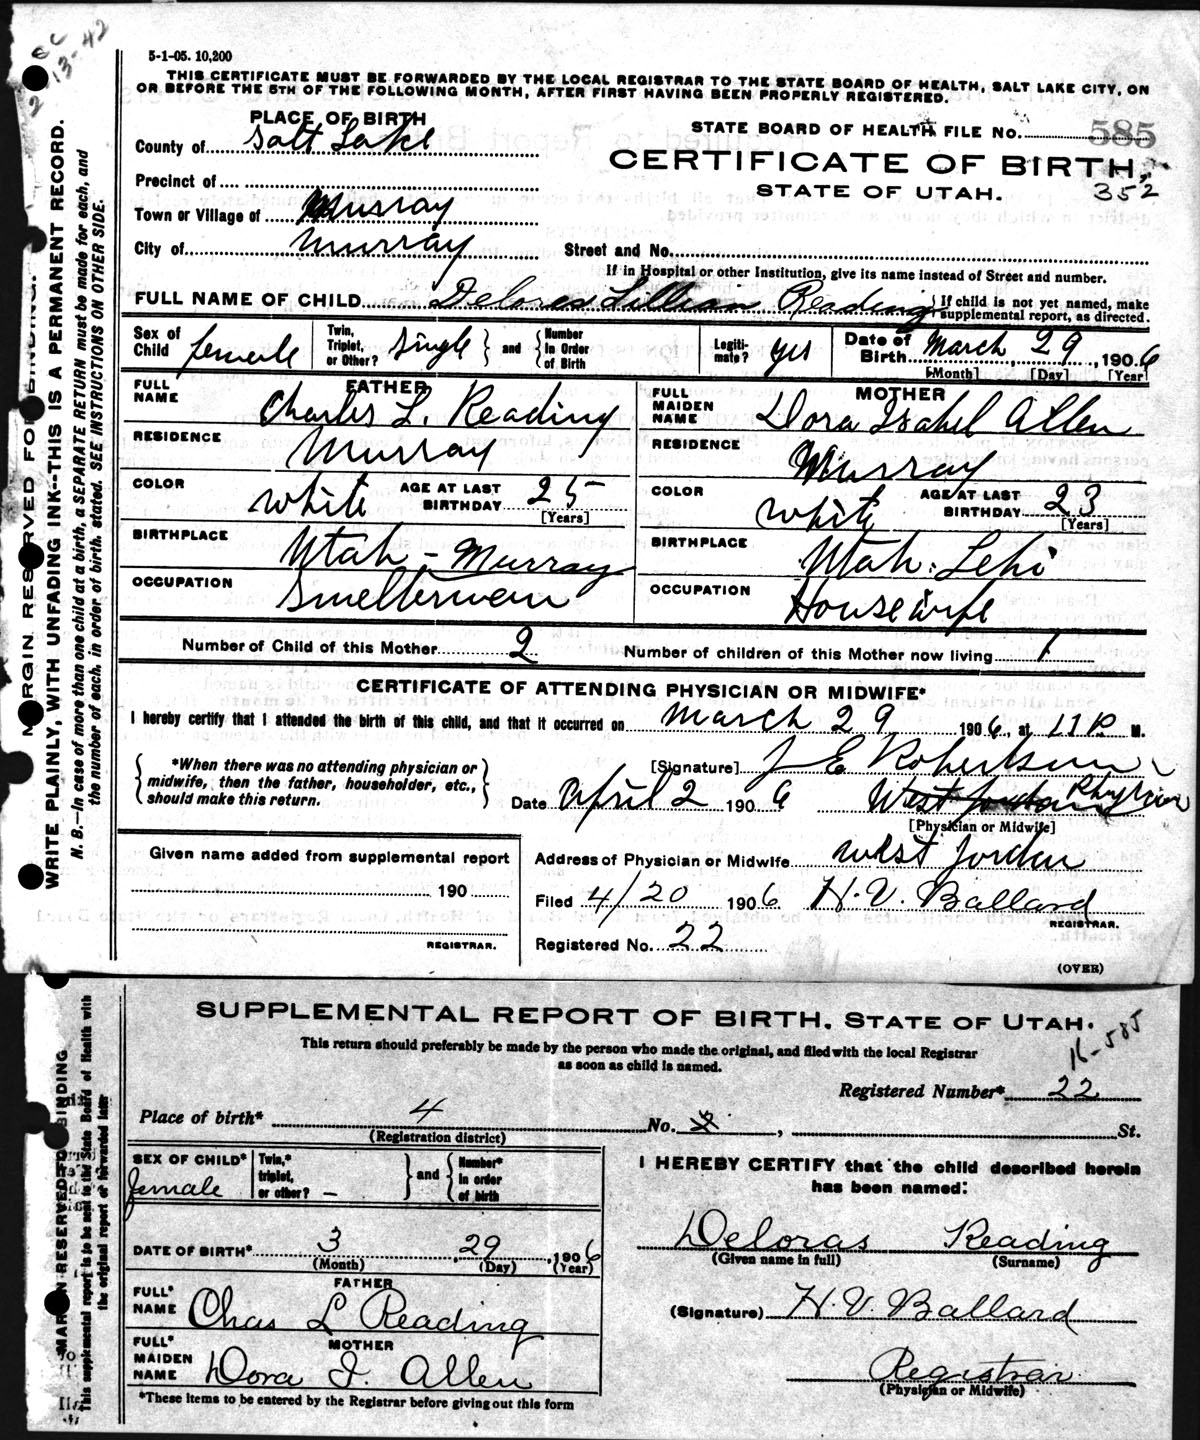 5-1-05. 10,200
THIS CERTIFICATE MUST BE FORWARDED BY THE LOCAL REGISTRAR TO THE STATE BOARD OF HEALTH, SALT LAKE CITY, ON
OR BEFORE THE 5TH OF THE FOLLOWING MONTH, AFTER FIRST HAVING BEEN PROPERLY REGISTERED.
PLACE OF BIRTH
County of Salt Lake
Precinct of
Town or Village of Murray
City of Murray
STATE BOARD OF HEALTH FILE No. 585
CERTIFICATE OF BIRTH,
STATE OF UTAH. 352
Street and No.
If in Hospital or other Institution, give its name instead of Street and number.
FULL NAME OF CHILD Delores Lillian Reading } If child is not yet named, make supplemental report, as directed.
Sex of Child female Twin, Triplet, or Other? single } and { Number In Order of Birth Legiti-mate? yes Date of Birth March, 29, 1906
[Month] [Day] [Year]
FATHER
FULL NAME Charles L. Reading
RESIDENCE Murray
COLOR white AGE AT LAST BIRTHDAY 25
[Years]
BIRTHPLACE Utah - Murray
OCCUPATION Smelterman
MOTHER
FULL MAIDEN NAME Dora Isabel Allen
RESIDENCE Murray
COLOR white AGE AT LAST BIRTHDAY 23
[Years]
BIRTHPLACE Utah. Lehi
OCCUPATION Housewife
Number of Child of this Mother 2 Number of children of this Mother now living 1
CERTIFICATE OF ATTENDING PHYSICIAN OR MIDWIFE*
I hereby certify that I attended the birth of this child, and that it occurred on March 29 1906, at 11 P. M.
{ *When there was no attending physician or
midwife, then the father, householder, etc.,
should make this return. }
[Signature] J E Robertson
Date April 2 1906 West Jordan Physician
[Physician or Midwife]
Given name added from supplemental report
190
REGISTRAR.
Address of Physician or Midwife West Jordan
Filed 4/20 1906 H. V. Ballard
REGISTRAR.
Registered No. 22
(OVER)
MARGIN RESERVED FOR BINDING.
WRITE PLAINLY, WITH UNFADING INK--THIS IS A PERMANENT RECORD.
N. B.—In case of more than one child at a birth, a SEPARATE RETURN must be made for each, and
the number of each, in order of birth, stated. SEE INSTRUCTIONS ON OTHER SIDE.
SUPPLEMENTAL REPORT OF BIRTH. STATE OF UTAH.
This return should preferably be made by the person who made the original, and filed with the local Registrar
as soon as child is named.
16-585
Registered Number* 22
Place of birth* 4 No. , St.
(Registration district)
SEX OF CHILD* female Twin,* triplet, or other? – } and { Number* in order of birth
DATE OF BIRTH* 3 29, 1906
(Month) (Day) (Year)
FATHER
FULL* NAME Chas L Reading
MOTHER
FULL* MAIDEN NAME Dora I. Allen
*These items to be entered by the Registrar before giving out this form
I HEREBY CERTIFY that the child described herein
has been named:
Deloras Reading
(Given name in full) (Surname)
(Signature) H. V. Ballard
Registrar
(Physician or Midwife)
MARGIN RESERVED FOR BINDING
This supplemental report to be sent to the State Board of Health with
the original report or forwarded later